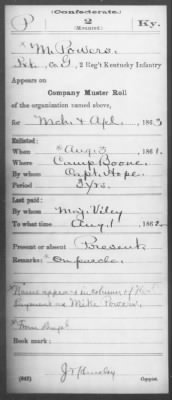 (Confederate.)
P 2 Ky.
(Mounted.)
* M. Powers.
Pvt., Co. G, 2 Reg't Kentucky Infantry
Appears on
Company Muster Roll
of the organization named above,
for Mch. & Apl., 1863
Enlisted:
When * Aug. 3, 1861.
Where Camp Boone.
By whom Capt. Hope.
Period 3 yrs.
Last paid:
By whom Maj. Viley
To what time Aug. 1, 1862.
Present or absent Present
Remarks: On parole.
* Name appears in column of
Payment as Mike Powers.
* From
Book mark:
(642) Copyist.